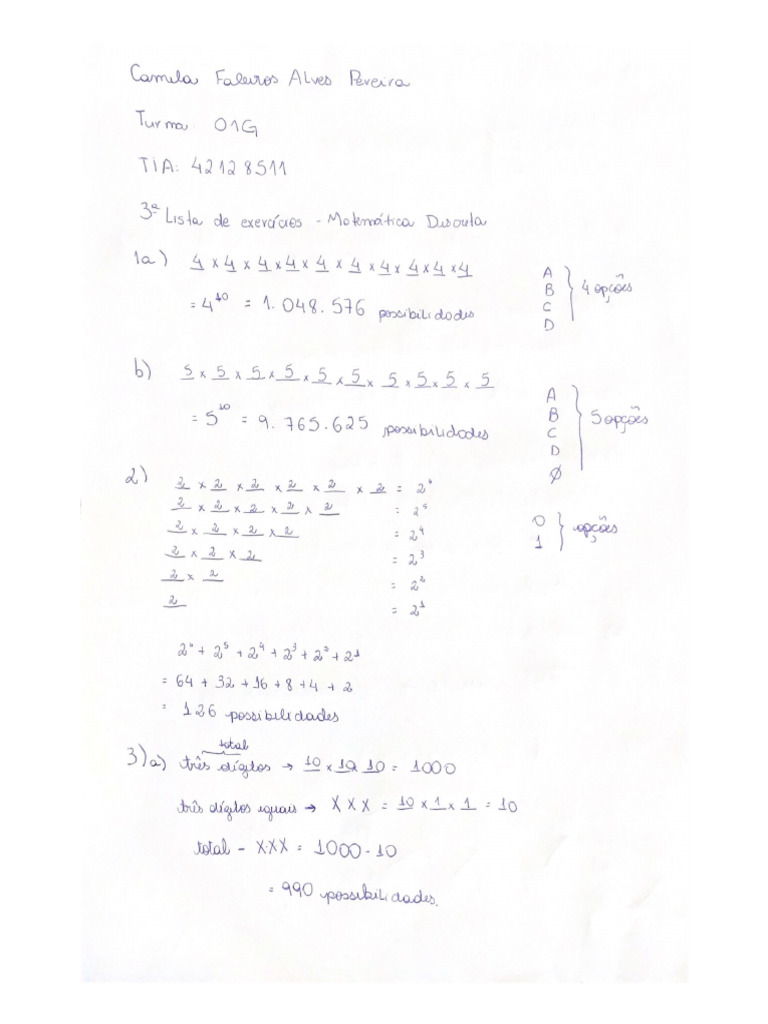 Camila Faleiros Alves Pereira
Turma 01G
TIA: 42128511
3ª Lista de exercícios - Matemática Discreta
1a) 4 x 4 x 4 x 4 x 4 x 4 x 4 x 4 x 4 x 4
= 4¹⁰ = 1.048.576 possibilidades
A
B
C
D
4 opções
b) 5 x 5 x 5 x 5 x 5 x 5 x 5 x 5 x 5 x 5
= 5¹⁰ = 9.765.625 possibilidades
A
B
C
D
Ø
5 opções
2) 2 x 2 x 2 x 2 x 2 x 2 = 2⁶
2 x 2 x 2 x 2 x 2 = 2⁵
2 x 2 x 2 x 2 = 2⁴
2 x 2 x 2 = 2³
2 x 2 = 2²
2 = 2¹
0
1
opções
2⁶ + 2⁵ + 2⁴ + 2³ + 2² + 2¹
= 64 + 32 + 16 + 8 + 4 + 2
= 126 possibilidades
total
3)a) três dígitos → 10 x 10 10 = 1000
três dígitos iguais → X X X = 10 x 1 x 1 = 10
total - X X X = 1000 - 10
= 990 possibilidades.